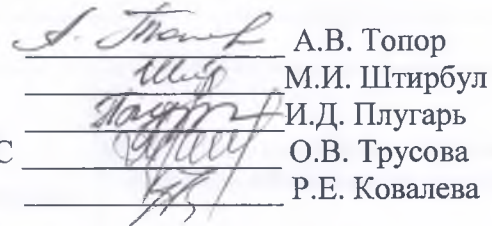 А.В. Топор
М.И. Штирбул
И.Д. Плугарь
С О.В. Трусова
Р.Е. Ковалева